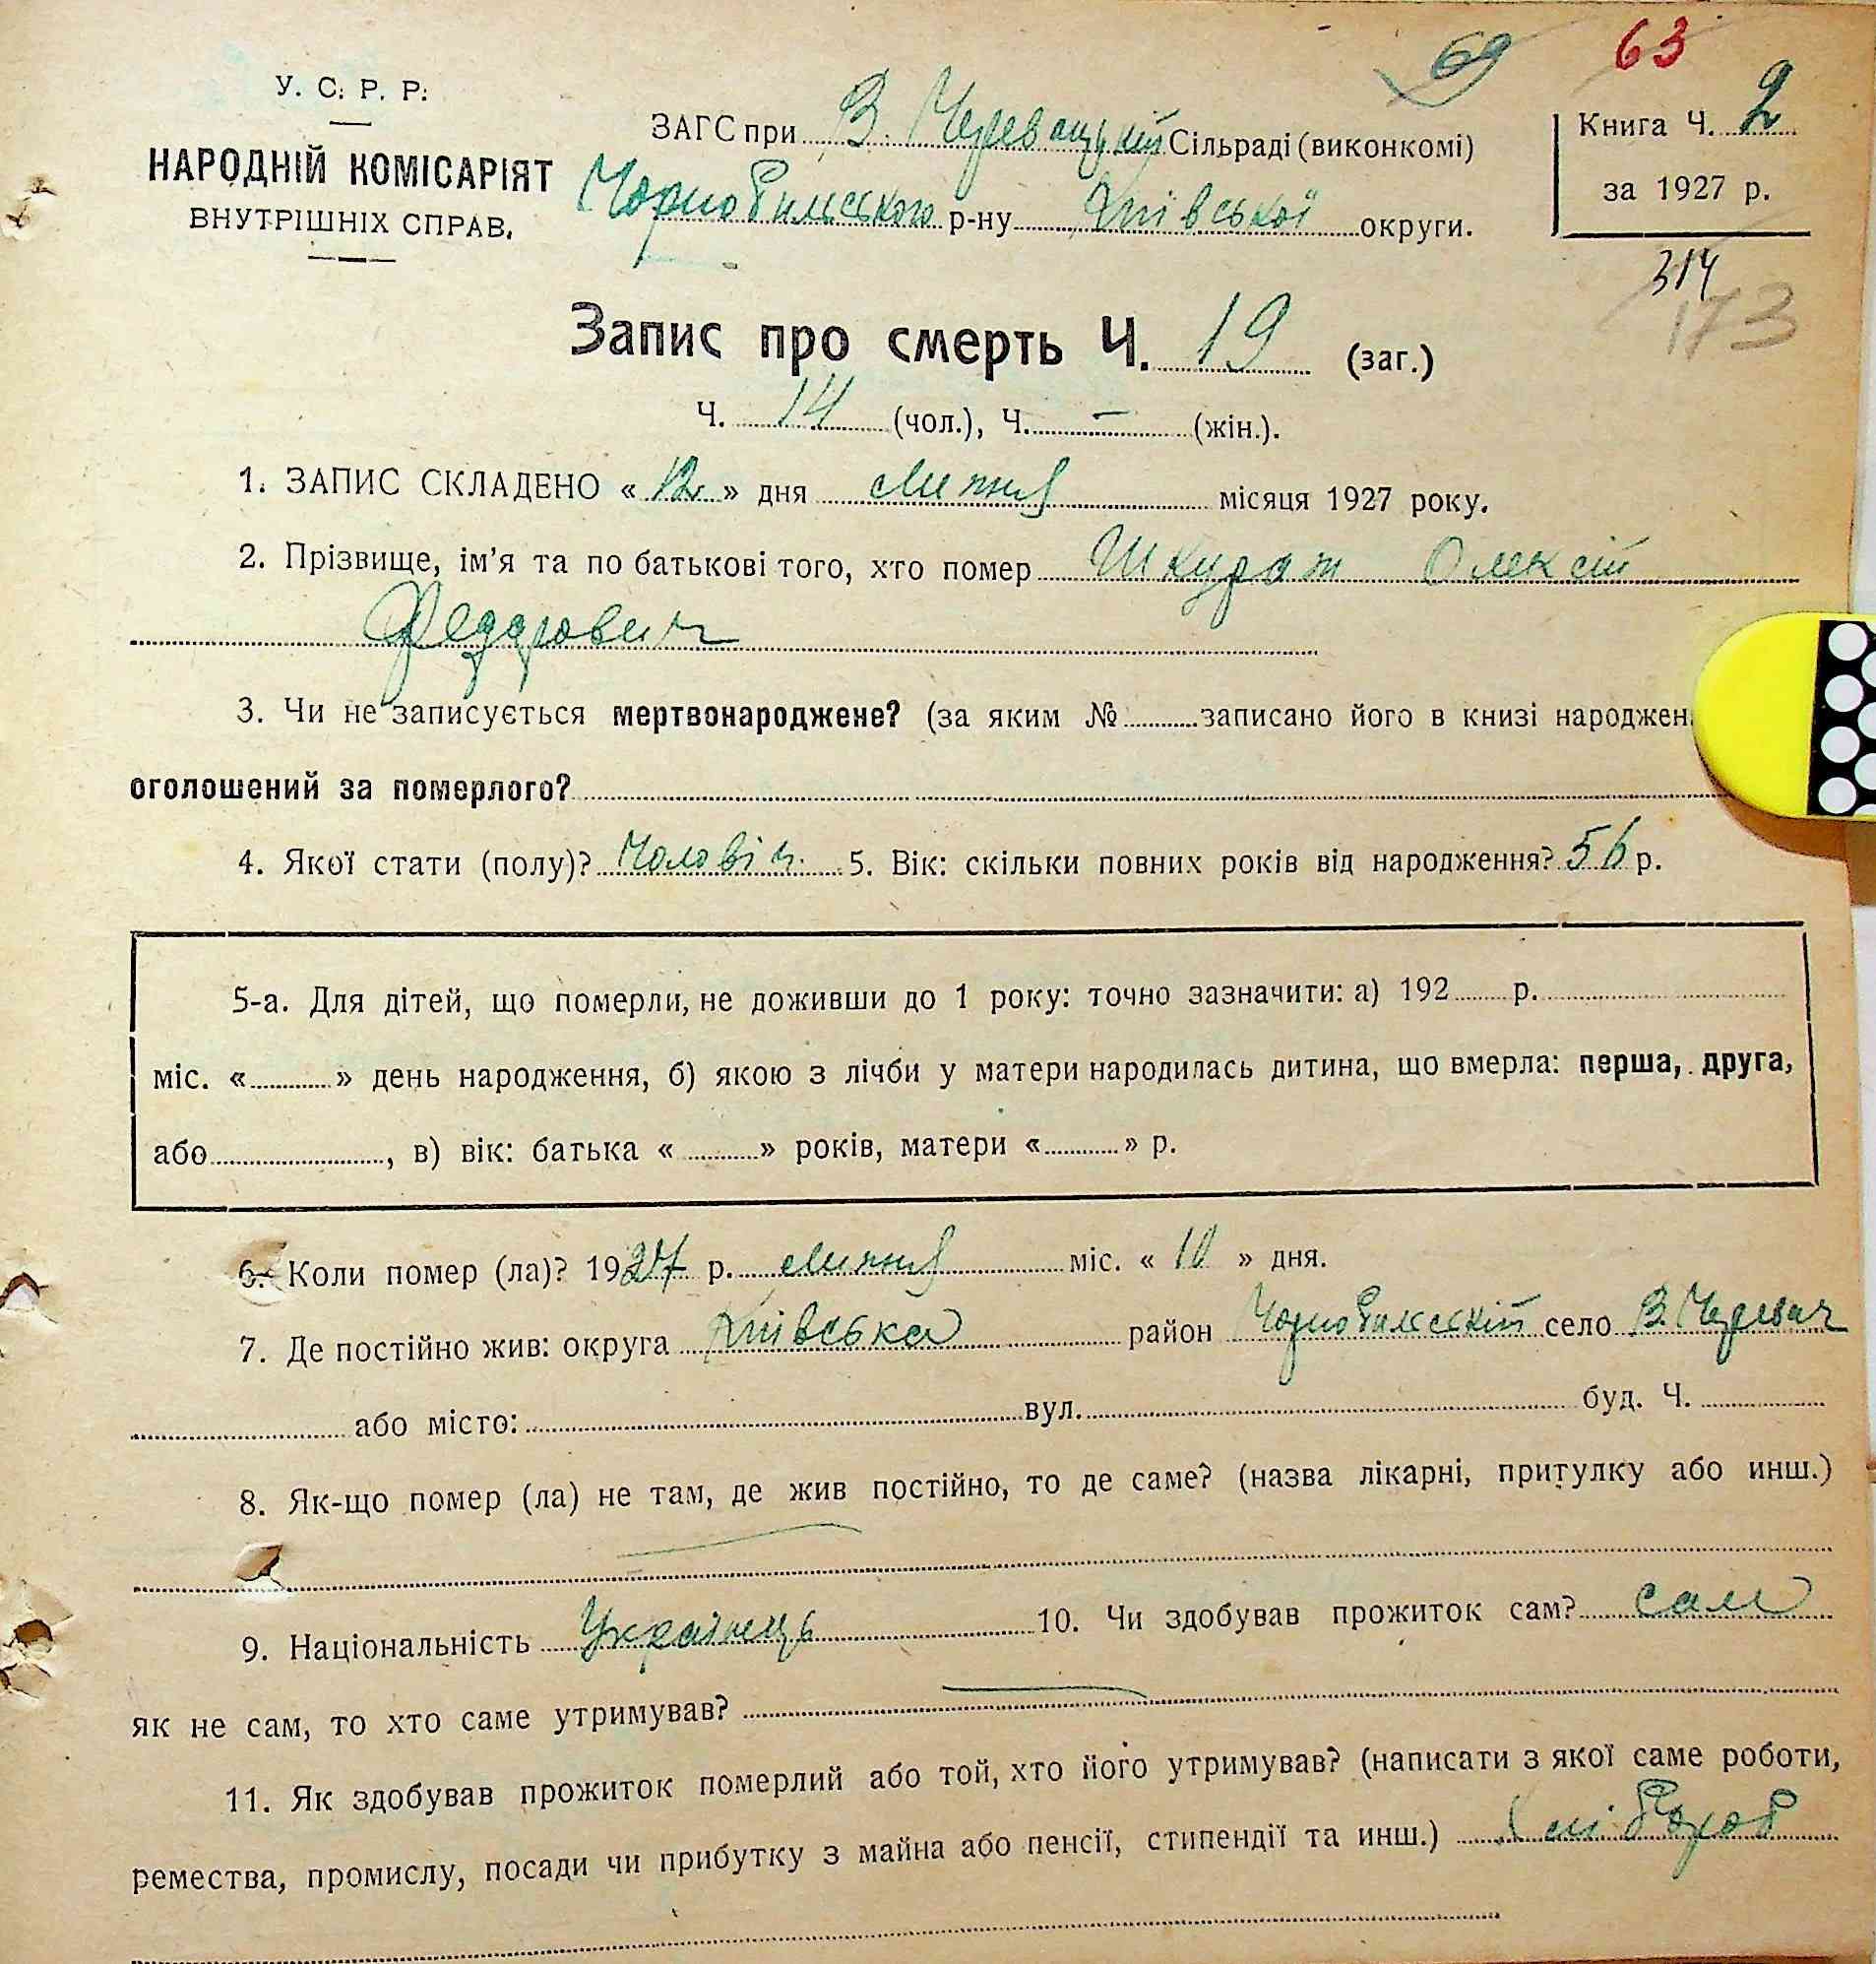 69 63
У. С. Р. Р.
НАРОДНІЙ КОМІСАРІЯТ
ВНУТРІШНІХ СПРАВ.
ЗАГС при В. Черевацькій Сільраді (виконкомі)
Чорнобильського р-ну Київської округи.
Книга Ч. 2
за 1927 р.
314
173
Запис про смерть Ч. 19 (заг.)
Ч. 14 (чол.), Ч. – (жін.).
1. ЗАПИС СКЛАДЕНО « 12 » дня липня місяця 1927 року.
2. Прізвище, ім'я та по батькові того, хто помер Шкурат Олексій
Федорович
3. Чи не записується мертвонароджене? (за яким № записано його в книзі народжен
оголошений за померлого?
4. Якої стати (полу)? Чоловіч. 5. Вік: скільки повних років від народження? 56 р.
5-а. Для дітей, що померли, не доживши до 1 року: точно зазначити: а) 192 р.
міс. « » день народження, б) якою з лічби у матери народилась дитина, що вмерла: перша, друга,
або , в) вік: батька « » років, матери « » р.
6. Коли помер (ла)? 1927 р. липня міс. « 10 » дня.
7. Де постійно жив: округа Київська район Чорнобильський село В. Черевач
або місто: вул. буд. Ч.
8. Як-що помер (ла) не там, де жив постійно, то де саме? (назва лікарні, притулку або инш.)
9. Національність Українець 10. Чи здобував прожиток сам? сам
як не сам, то хто саме утримував?
11. Як здобував прожиток померлий або той, хто його утримував? (написати з якої саме роботи,
ремества, промислу, посади чи прибутку з майна або пенсії, стипендії та инш.) Хлібороб